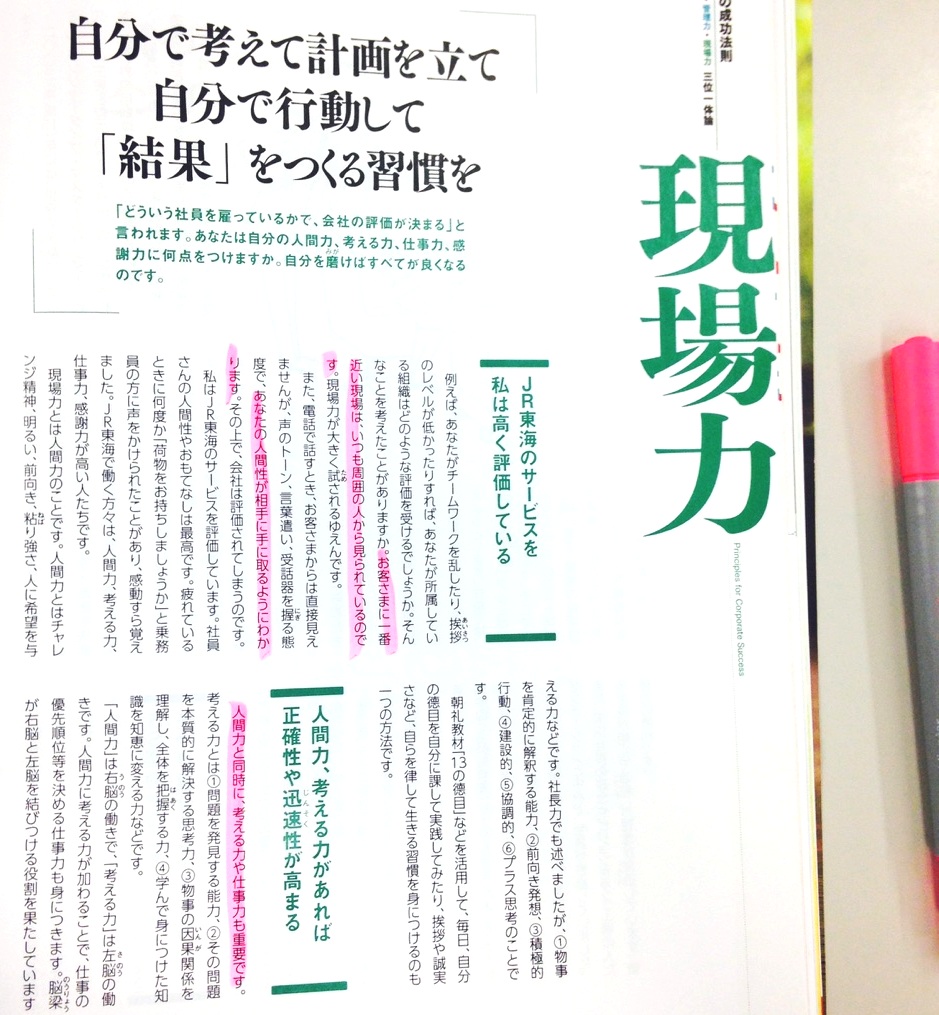 の成功法則
管理力・現場力 三位一体論
現場力
Principles for Corporate Success
自分で考えて計画を立て
自分で行動して
「結果」をつくる習慣を
「どういう社員を雇っているかで、会社の評価が決まる」と
言われます。あなたは自分の人間力、考える力、仕事力、感
謝力に何点をつけますか。自分を磨けばすべてが良くなる
のです。
JR東海のサービスを
私は高く評価している
例えば、あなたがチームワークを乱したり、挨拶
のレベルが低かったりすれば、あなたが所属してい
る組織はどのような評価を受けるでしょうか。そん
なことを考えたことがありますか。お客さまに一番
近い現場は、いつも周囲の人から見られているので
す。現場力が大きく試されるゆえんです。
また、電話で話すとき、お客さまからは直接見え
ませんが、声のトーン、言葉遣い、受話器を握る態
度で、あなたの人間性が相手に手に取るようにわか
ります。その上で、会社は評価されてしまうのです。
私はJR東海のサービスを評価しています。社員
さんの人間性やおもてなしは最高です。疲れている
ときに何度か「荷物をお持ちしましょうか」と乗務
員の方に声をかけられたことがあり、感動すら覚え
ました。JR東海で働く方々は、人間力、考える力、
仕事力、感謝力が高い人たちです。
現場力とは人間力のことです。人間力とはチャレ
ンジ精神、明るい、前向き、粘り強さ、人に希望を与
える力などです。社長力でも述べましたが、①物事
を肯定的に解釈する能力、②前向き発想、③積極的
行動、④建設的、⑤協調的、⑥プラス思考のことで
す。
朝礼教材「13の徳目」などを活用して、毎日、自分
の徳目を自分に課して実践してみたり、挨拶や誠実
さなど、自らを律して生きる習慣を身につけるのも
一つの方法です。
人間力、考える力があれば
正確性や迅速性が高まる
人間力と同時に、考える力や仕事力も重要です。
考える力とは①問題を発見する能力、②その問題
を本質的に解決する思考力、③物事の因果関係を
理解し、全体を把握する力、④学んで身につけた知
識を知恵に変える力などです。
「人間力」は右脳の働きで、「考える力」は左脳の働
きです。人間力に考える力が加わることで、仕事の
優先順位等を決める仕事力も身につきます。脳梁
が右脳と左脳を結びつける役割を果たしています